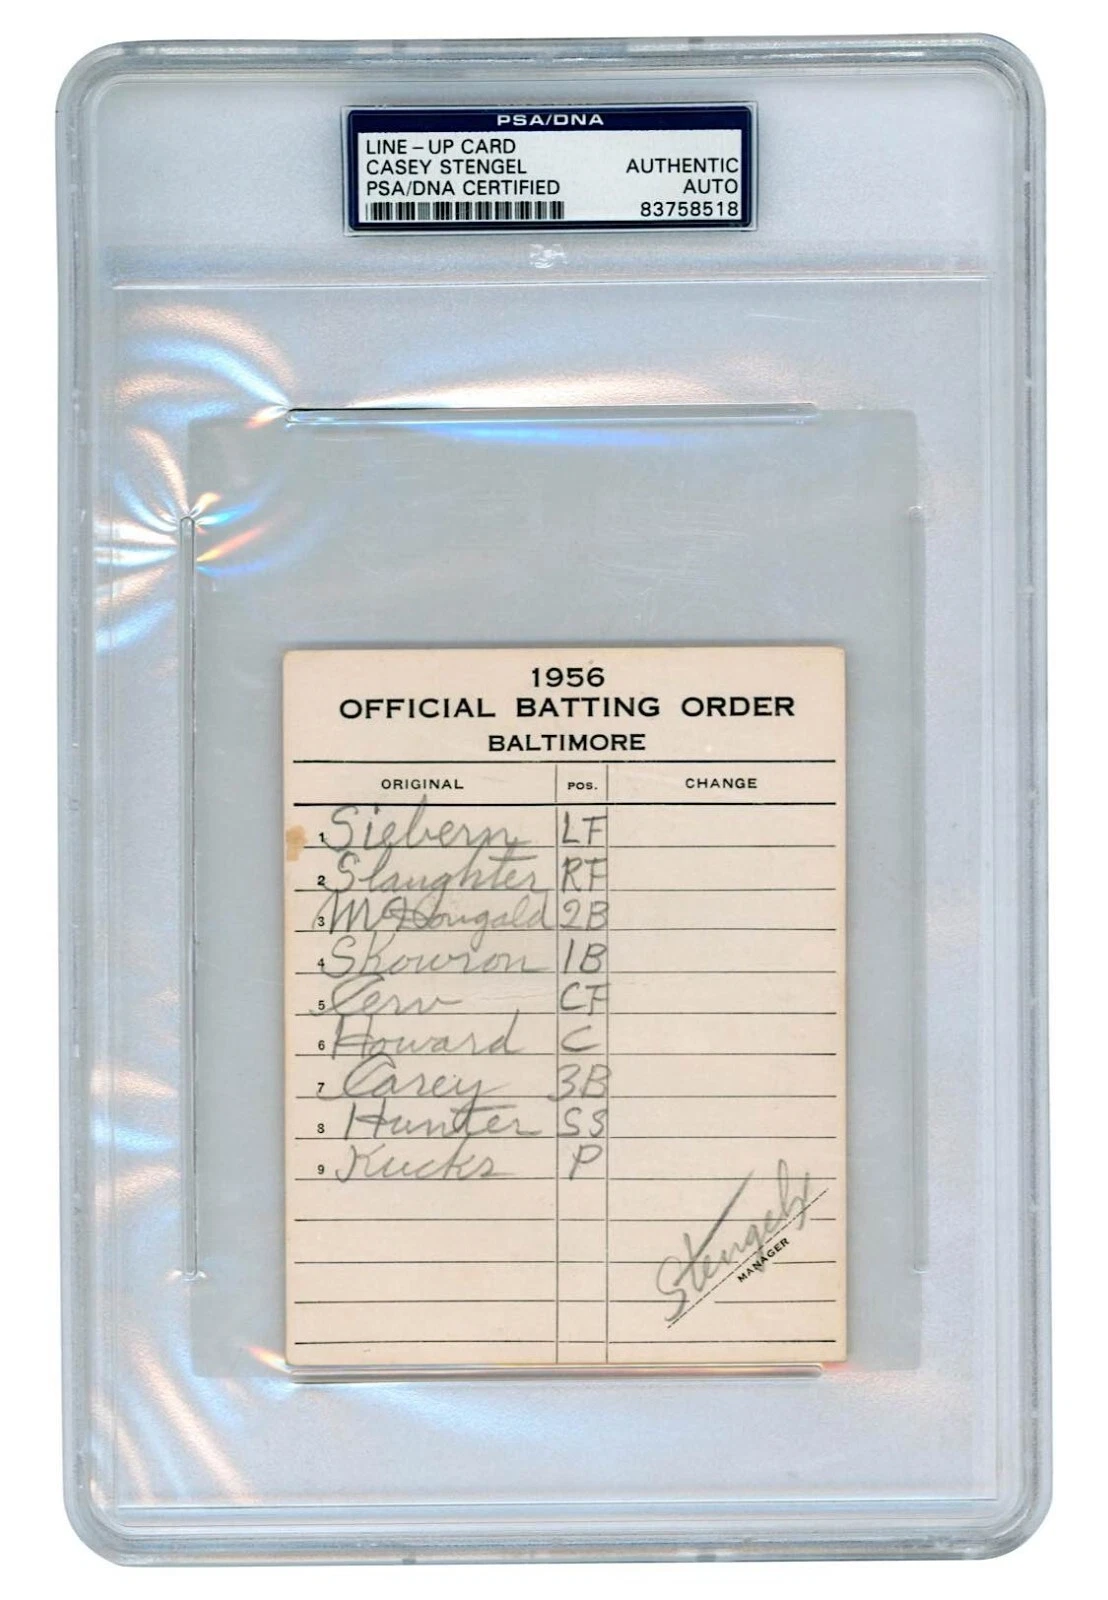 PSA/DNA
LINE-UP CARD
CASEY STENGEL
PSA/DNA CERTIFIED
AUTHENTIC
AUTO
83758518
1956
OFFICIAL BATTING ORDER
BALTIMORE
ORIGINAL POS. CHANGE
1 Siebern LF
2 Slaughter RF
3 McDougald 2B
4 Skowron 1B
5 Cerv CF
6 Howard C
7 Carey 3B
8 Hunter SS
9 Kucks P
Stengel
MANAGER